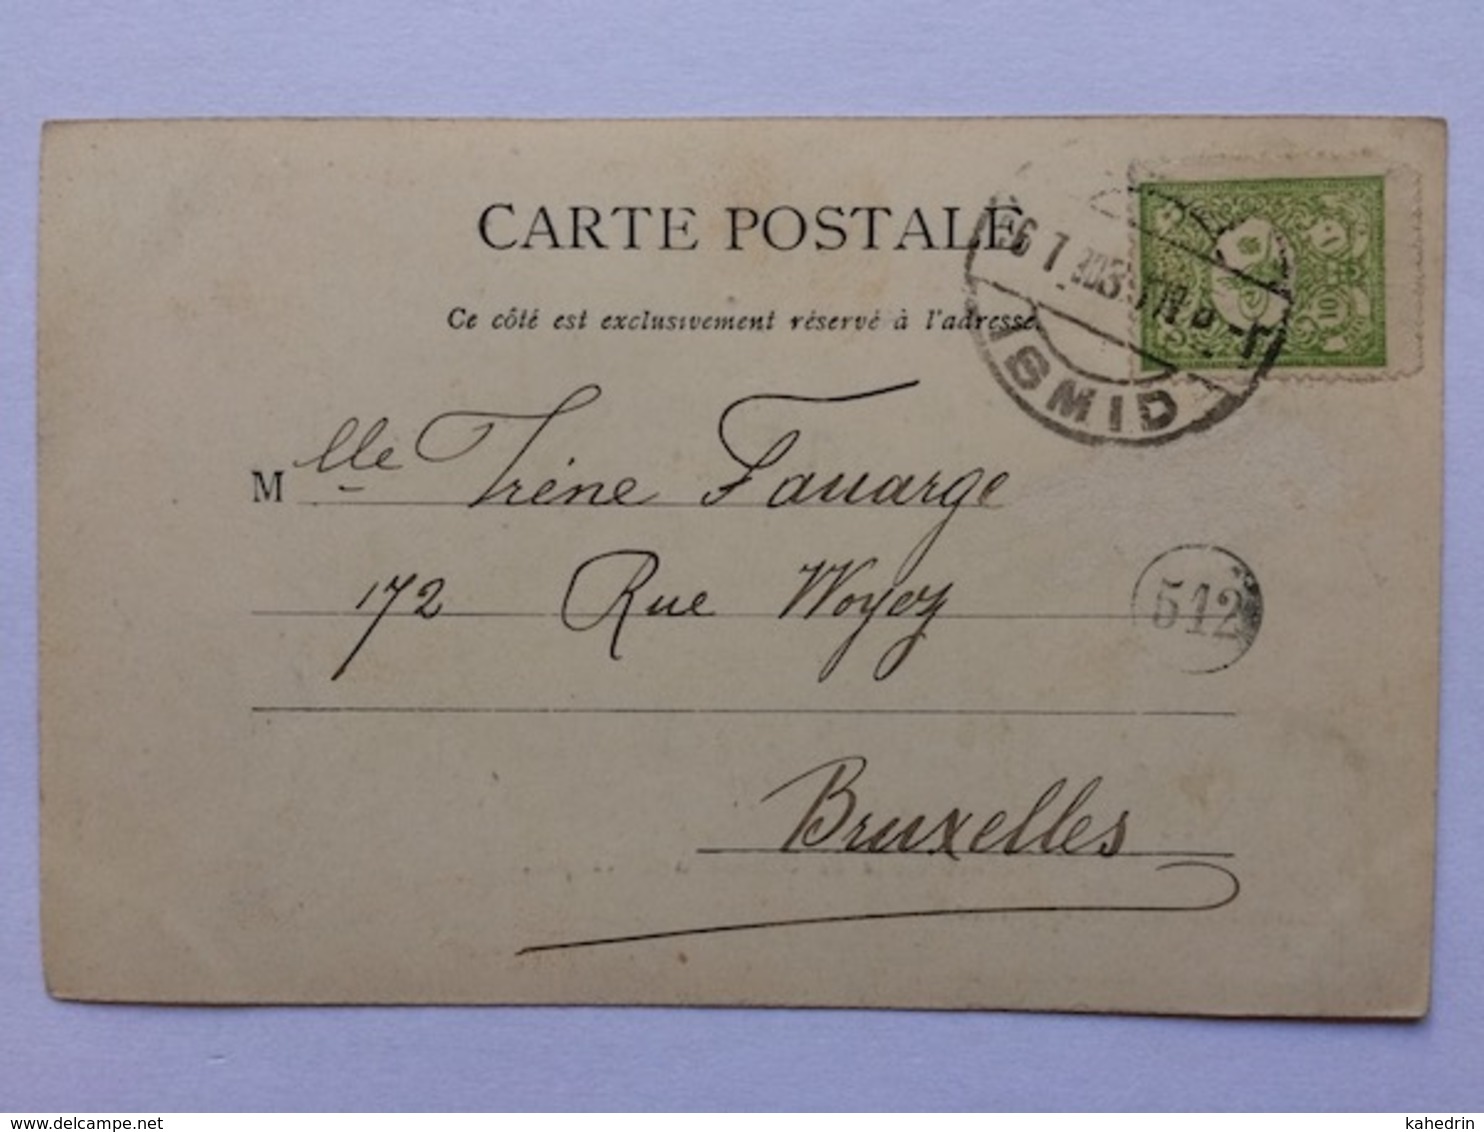 CARTE POSTALE
Ce côté est exclusivement réservé à l'adresse
ISMID
10
Mlle Irène Fauarge
172 Rue Woyez
512
Bruxelles
www.delcampe.net
kahedrin